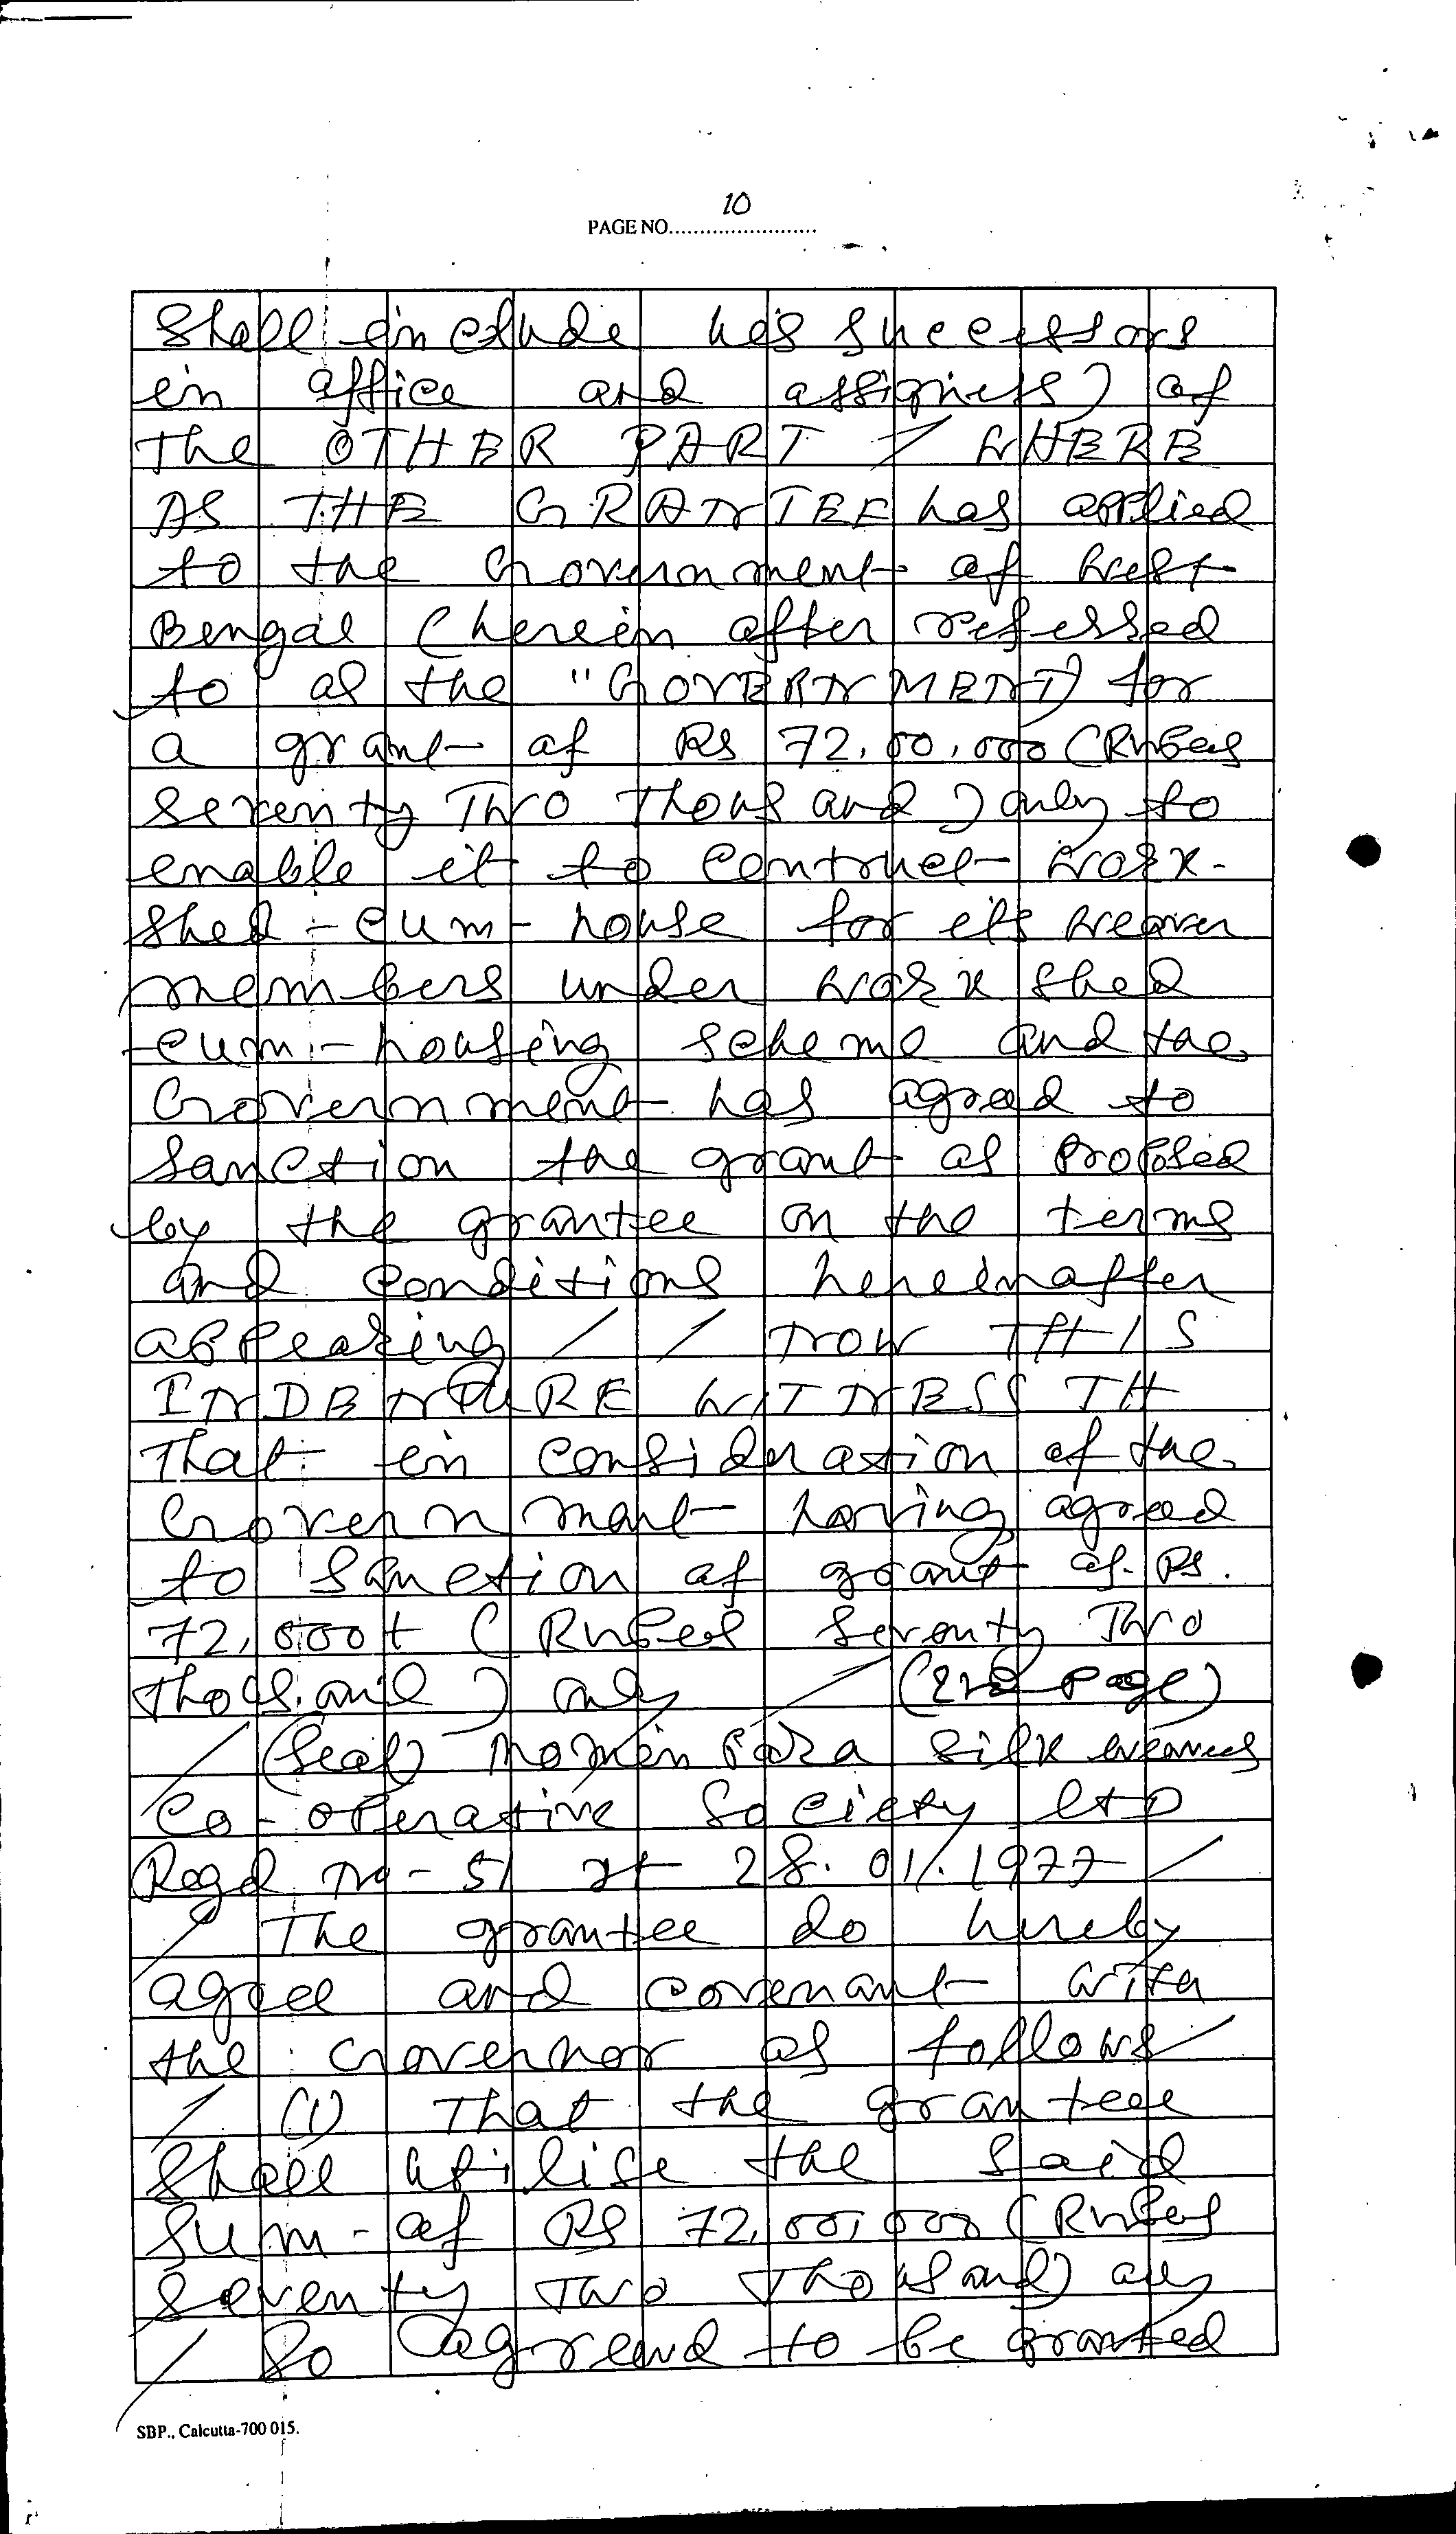 10
PAGE NO........................
Shall include his successors
in office and assigness) of
the OTHER PART / WHERE
AS THE GRANTEE has applied
to the Government of West
Bengal (herein after refessed
to as the "GOVERNMENT) for
a grant of Rs 72,00,000 (Rupees
seventy Two thousand) only to
enable it to contruct work-
shed-cum-house for its weaver
members under work shed
-cum-housing scheme and the
Government has agreed to
sanction the grant as proposed
by the grantee on the terms
and conditions hereinafter
appearing / / NOW THIS
INDENTURE WITNESS TH
That in consideration of the
Government having agreed
to sanction of grant of Rs.
72,000+ (Rupees Seventy Two
thousand) only / (2nd page)
/ (Seal) Momin Para Silk weavers
Co-operative Society Ltd
Regd No-51 dt 28.01.1977 /
/ The grantee do hereby
agree and covenant with
the Governor as follows /
/ (1) That the grantee
shall utilise the said
sum-of Rs 72,00,000 (Rupees
Seventy Two Thousand) only
/ So agreed to be granted
SBP., Calcutta-700 015.